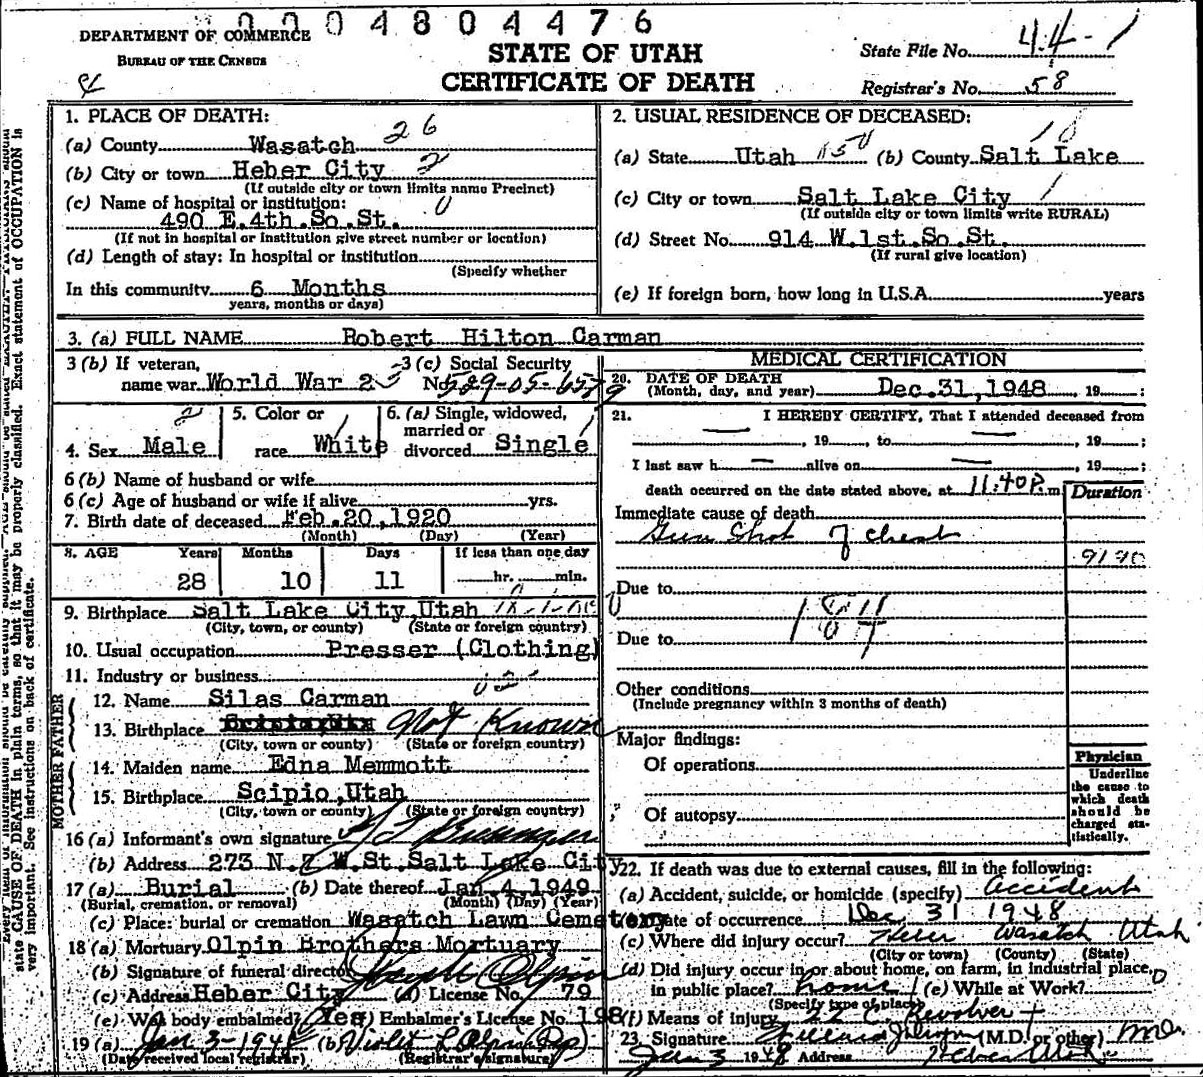 0004804476
DEPARTMENT OF COMMERCE
BUREAU OF THE CENSUS
STATE OF UTAH
CERTIFICATE OF DEATH
State File No. 44-1
Registrar's No. 58
1. PLACE OF DEATH:
(a) County Wasatch 26
(b) City or town Heber City 2
(If outside city or town limits name Precinct)
(c) Name of hospital or institution: 0
490 E.4th.So.St.
(If not in hospital or institution give street number or location)
(d) Length of stay: In hospital or institution
(Specify whether
In this community 6 Months
years, months or days)
2. USUAL RESIDENCE OF DECEASED:
(a) State Utah (b) County Salt Lake
(c) City or town Salt Lake City 1
(If outside city or town limits write RURAL)
(d) Street No. 914 W.1st.So.St.
(If rural give location)
(e) If foreign born, how long in U.S.A. years
3. (a) FULL NAME Robert Hilton Carman
3 (b) If veteran, 3 (c) Social Security
name war World War 2 No. 529-05-6579
4. Sex Male 5. Color or race White 6. (a) Single, widowed, married or divorced Single
6 (b) Name of husband or wife
6 (c) Age of husband or wife if alive yrs.
7. Birth date of deceased Feb.20,1920
(Month) (Day) (Year)
8. AGE Years Months Days If less than one day
28 10 11 hr. min.
9. Birthplace Salt Lake City Utah
(City, town, or county) (State or foreign country)
10. Usual occupation Presser (Clothing)
11. Industry or business
FATHER
12. Name Silas Carman
13. Birthplace Not Known
(City, town or county) (State or foreign country)
MOTHER
14. Maiden name Edna Memmott
15. Birthplace Scipio,Utah
(City, town or county) (State or foreign country)
16 (a) Informant's own signature
(b) Address 273 N. 7 W.St.Salt Lake City
17 (a) Burial (b) Date thereof Jan.4,1949
(Burial, cremation, or removal) (Month) (Day) (Year)
(c) Place: burial or cremation Wasatch Lawn Cemetery
18 (a) Mortuary Olpin Brothers Mortuary
(b) Signature of funeral director
(c) Address Heber City (d) License No. 79
(e) Was body embalmed? Yes (f) Embalmer's License No. 198
19 (a) Jan 3-1948 (b) Violet L. Olpin Dep
(Date received local registrar) (Registrar's signature)
MEDICAL CERTIFICATION
20. DATE OF DEATH
(Month, day, and year) Dec.31,1948 19 ;
21. I HEREBY CERTIFY, That I attended deceased from
, 19 , to , 19 ;
I last saw h alive on , 19 ;
death occurred on the date stated above, at 11:40 P. m
Duration
Immediate cause of death
Gun Shot of Chest
Due to
184
Due to
Other conditions
(Include pregnancy within 3 months of death)
Major findings:
Of operations
Of autopsy
Physician
Underline
the cause to
which death
should be
charged sta-
tistically.
22. If death was due to external causes, fill in the following:
(a) Accident, suicide, or homicide (specify) accident
(b) Date of occurrence Dec 31 1948
(c) Where did injury occur? Heber Wasatch Utah
(City or town) (County) (State)
(d) Did injury occur in or about home, on farm, in industrial place,
in public place? home (e) While at Work?
(Specify type of place)
(f) Means of injury 22 C. Revolver
23. Signature (M.D. or other) MD
Jan 3 1948 Address Heber Utah